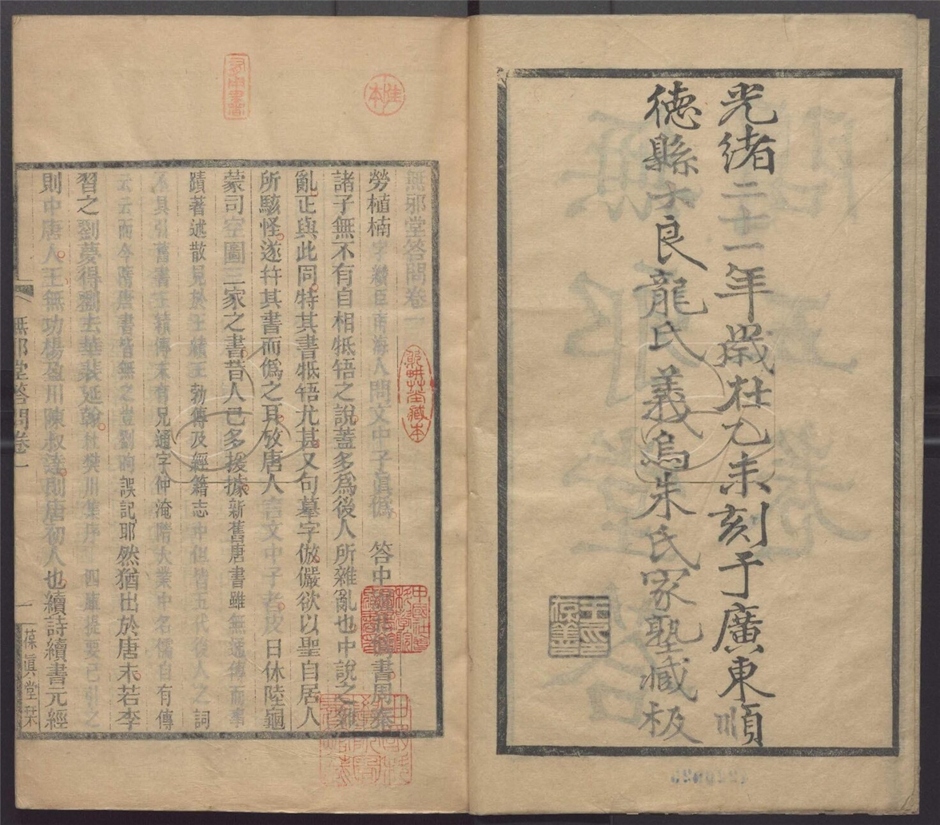 光緒二十一年歲在乙未刻于廣東順
德縣大良龍氏義烏朱氏家塾臧板
無邪堂答問卷一
勞植楠字纘臣南海人問文中子真偽 答中 書周秦
諸子無不有自相牴牾之說蓋多為後人所雜亂也中說之雜
亂正與此同特其書牴牾尤甚又句摹字倣儼欲以聖自居人
所駭怪遂幷其書而偽之耳攷唐人言文中子者皮日休陸龜
蒙司空圖三家之書昔人已多援據新舊唐書雖無通傳而事
蹟著述散見於王績王勃傳及經籍志中但皆五代後人之詞
具引舊書王績傳末有兄通字仲淹隋大業中名儒自有傳
云云而今隋唐書皆無之豈劉昫誤記耶然猶出於唐末若李
習之劉夢得劉去華裴延翰杜樊川集序四庫提要已引之
則中唐人王無功楊盈川陳叔達則唐初人也續詩續書元經
無邪堂答問卷一
一
葆真堂栞